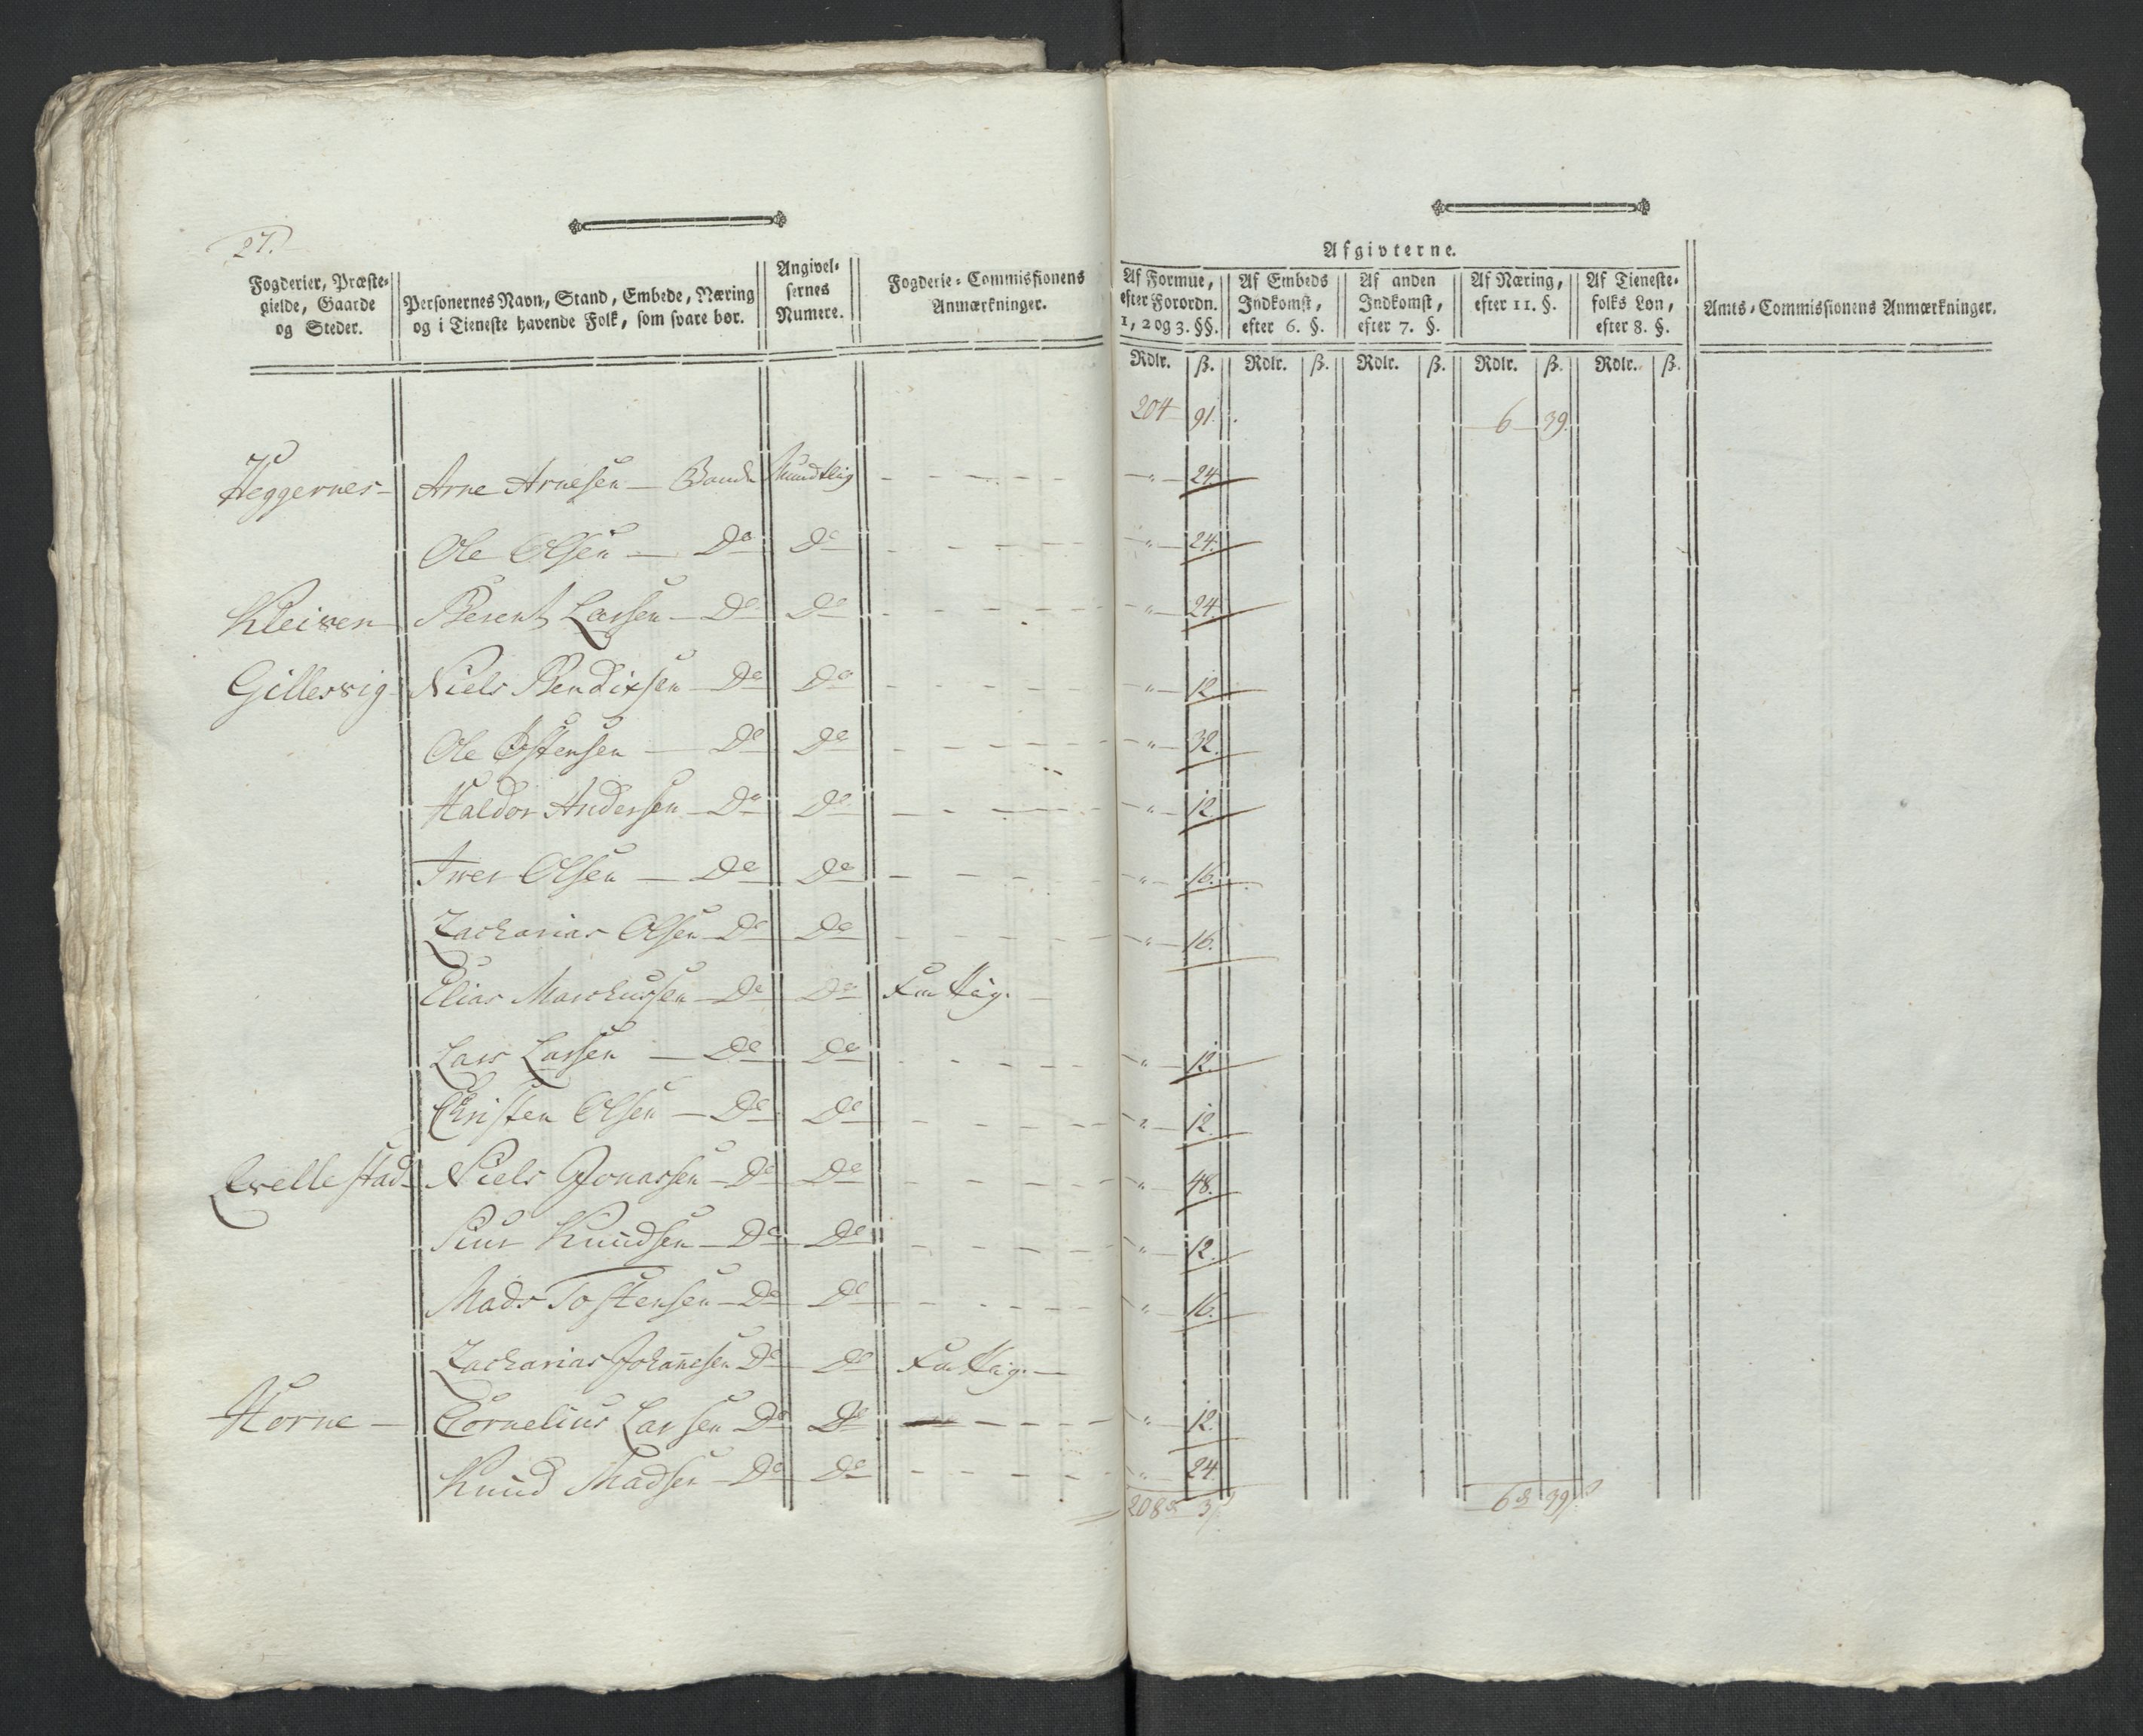 27.
Fogderier, Præste-
gielde, Gaarde
og Steder.
Personernes Navn, Stand, Embede, Næring
og i Tieneste havende Folk, som svare bør.
Angivel-
sernes
Numere.
Fogderie-Commissionens
Anmærkninger.
Afgivterne.
Af Formue,
efter Forordn.
1, 2 og 3. §§.
Af Embeds
Indkomst,
efter 6. §.
Af anden
Indkomst,
efter 7. §.
Af Næring,
efter 11. §.
Af Tieneste-
folks Løn,
efter 8. §.
Amts-Commissionens Anmærkninger.
Rdlr. ß. Rdlr. ß. Rdlr. ß. Rdlr. ß. Rdlr. ß.
204 91. 6 39.
Heggernes - Arne Arnesen - Bonde Mundtlig - - - - " - 24.
Ole Olsen - Do Do - - - - " - 24.
Kleiven Berent Larsen - Do Do - - - - " - 24.
Gillesvig Niels Bendixsen Do Do - - - - " - 12
Ole Østensen - Do Do - - - - " - 32.
Haldor Andersen - Do Do - - - - " - 12
Iver Olsen - Do Do - - - - " - 16.
Zacharias Olsen - Do Do - - - - " - 16.
Elias Marchussen - Do Do Fattig. -
Lars Larsen - Do Do - - - - " - 12.
Christen Olsen - Do Do - - - - " - 12.
Qvellestad - Niels Jonassen - Do Do - - - - " - 48.
Siur Knudsen - Do Do - - - - " - 12.
Mads Tostensen - Do Do - - - - " - 16.
Zacharias Johannesen Do Do Fattig. -
Horne - Cornelius Larsen Do Do - - - - " - 12.
Knud Madsen - Do Do - - - - " - 24.
208 3ß 6 39ß